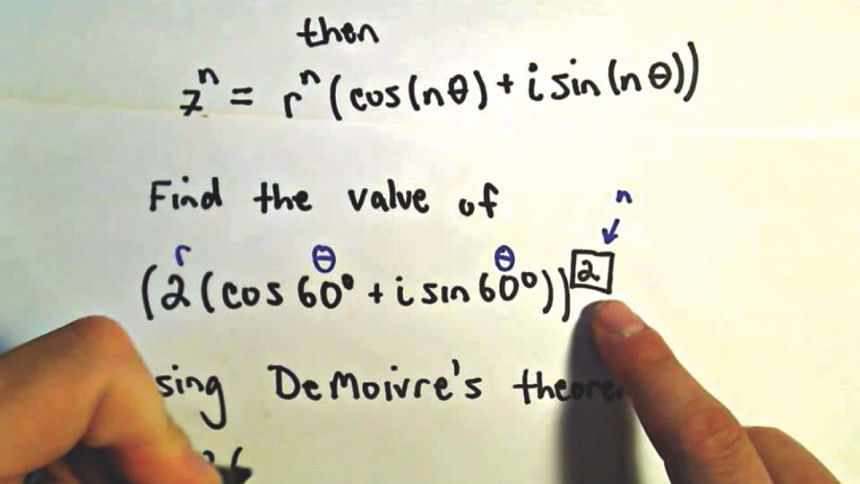 then
zⁿ = rⁿ(cos(nθ) + i sin(nθ))
Find the value of
n
r θ θ
(2(cos 60° + i sin 60°))²
sing DeMoivre's